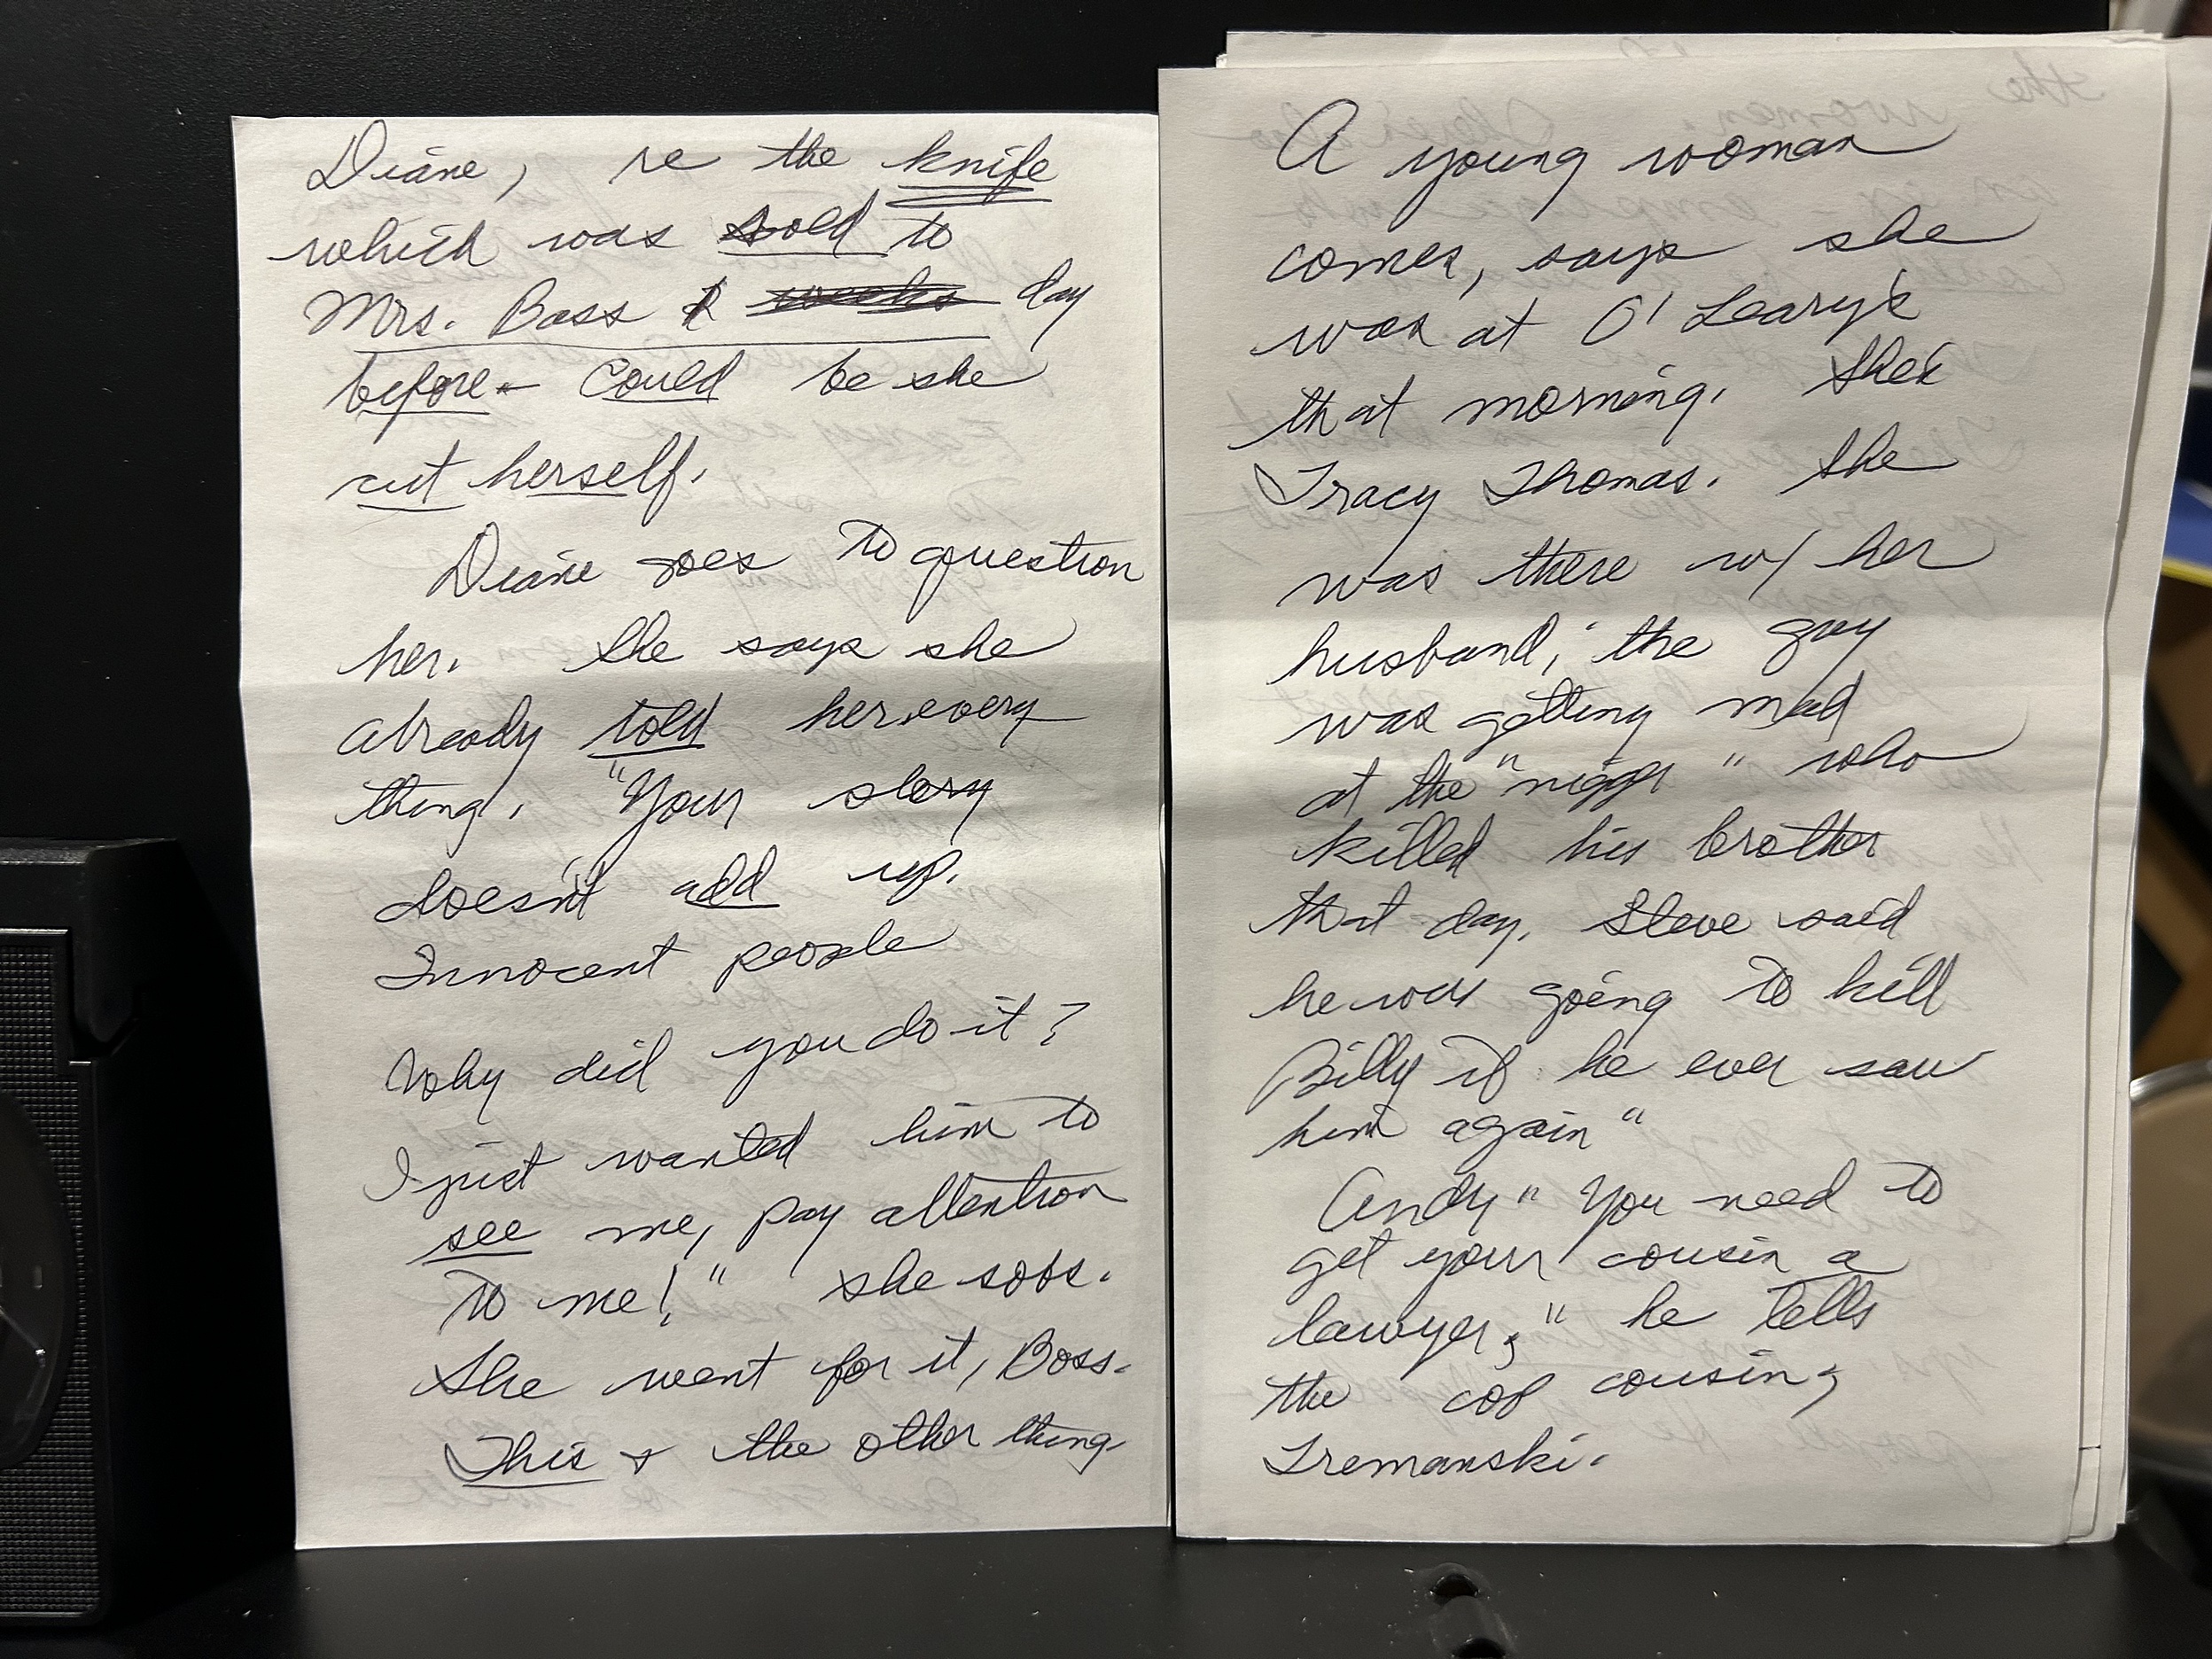 Diane, re the knife
which was sold to
Mrs. Bass 1 weeks day
before - Could be she
cut herself.
Diane goes to question
her. She says she
already told her every
thing. "Your story
doesn't add up.
Innocent people
Why did you do it?
I just wanted him to
see me, pay attention
to me!" she sobs.
She went for it, Boss.
This & the other thing.
A young woman
comes, says she
was at O'Leary's
that morning. She's
Tracy Thomas. She
was there w/ her
husband; the guy
was getting mad
at the "niggr" who
killed his brother
that day. Steve said
he was going to kill
Billy if he ever saw
him again"
Andy "You need to
get your cousin a
lawyer," he tells
the cop cousin,
Tremanski.